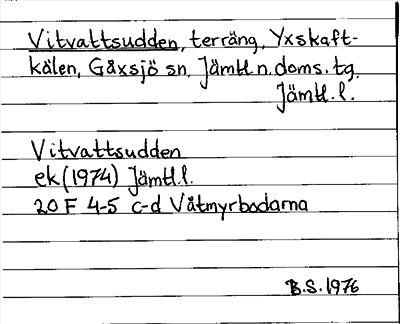 Vitvattsudden, terräng, Yxskaft-
kälen, Gåxsjö sn, Jämtl. n. doms. tg.
Jämtl. l.
Vitvattsudden
ek (1974) Jämtl. l.
20 F 4-5 c-d Våtmyrbodarna
B.S. 1976